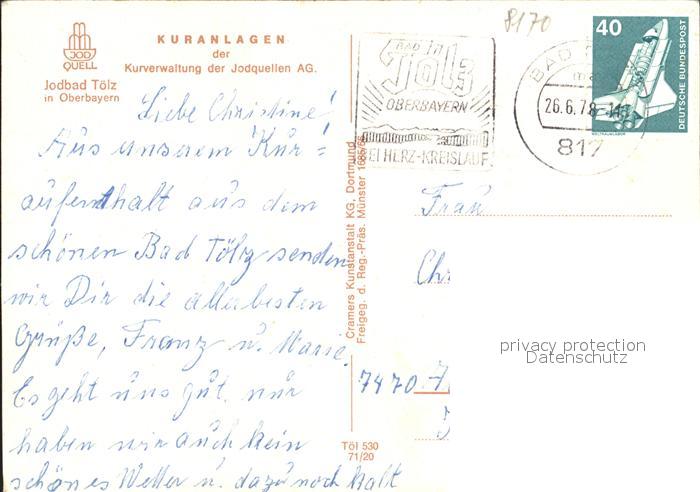 JOD
QUELL
Jodbad Tölz
in Oberbayern
KURANLAGEN
der
Kurverwaltung der Jodquellen AG.
Liebe Christine!
Aus unserem Kur=
aufenthalt aus dem
schönen Bad Tölz senden
wir Dir die allerbesten
Grüße, Franz u. Marie.
Es geht uns gut, nur
haben wir auch kein
schönes Wetter u. dazu noch kalt
Cramers Kunstanstalt KG, Dortmund
Freigeg. d. Reg.-Präs. Münster
Töl 530
71/20
8170
BAD in
Tölz
OBERBAYERN
BEI HERZ-KREISLAUF
BAD
26.6.78
817
40
DEUTSCHE BUNDESPOST
Frau
Chr
7470
privacy protection
Datenschutz